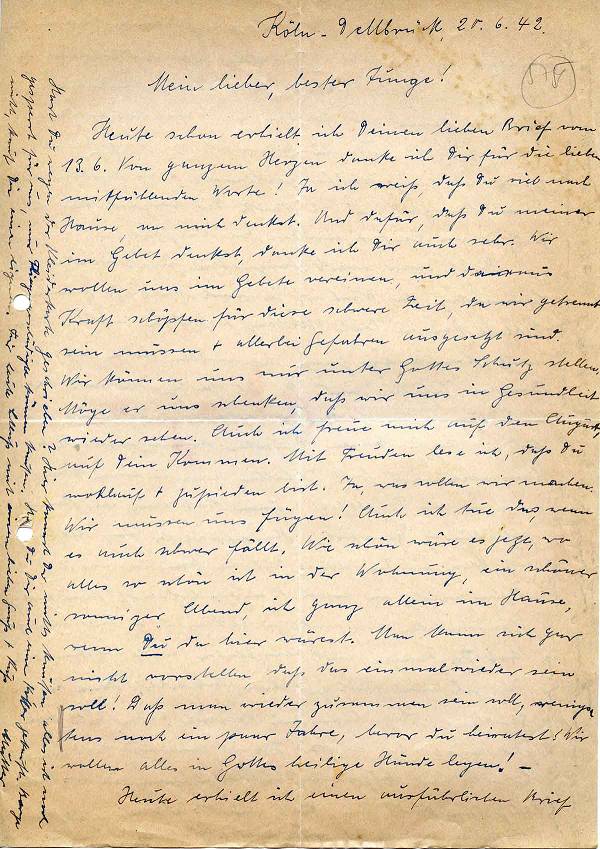 Köln-Dellbrück, 20.6.42.
Mein lieber, bester Junge!
Heute schon erhielt ich Deinen lieben Brief vom
13.6. Von ganzem Herzen danke ich Dir für die lieben
mitfühlenden Worte! Ja ich weiß, daß Du viel nach
Hause, an mich denkst. Und dafür, daß Du meiner
im Gebet denkst, danke ich Dir auch sehr. Wir
wollen uns im Gebete vereinen, und daraus
Kraft schöpfen für diese schwere Zeit, da wir getrennt
sein müssen + allerlei Gefahren ausgesetzt sind.
Wir können uns nur unter Gottes Schutz stellen,
Möge er uns schenken, daß wir uns in Gesundheit
wieder sehen. Auch ich freue mich auf den August,
auf Dein Kommen. Mit Freuden lese ich, daß Du
wohlauf + zufrieden bist. Ja, was sollen wir machen.
Wir müssen uns fügen! Auch ich tue das, wenn
es auch schwer fällt. Wie schön wäre es jetzt, wo
alles so schön ist in der Wohnung, ein schöner
sonniger Abend, ich ganz allein im Hause,
wenn Du da hier wärest. Man kann sich gar
nicht vorstellen, daß das einmal wieder sein
soll! Daß man wieder zusammen sein soll, wenigs
tens noch ein paar Jahre, bevor du heiratest! Wir
wollen alles in Gottes heilige Hände legen! –
Heute erhielt ich einen ausführlichen Brief
Hast Du wegen der Kleiderkarte geschrieben? Hier kannst Du nichts kaufen, alles ist noch
gesperrt für uns, nur Fliegergeschädigte können kaufen.
Mutter